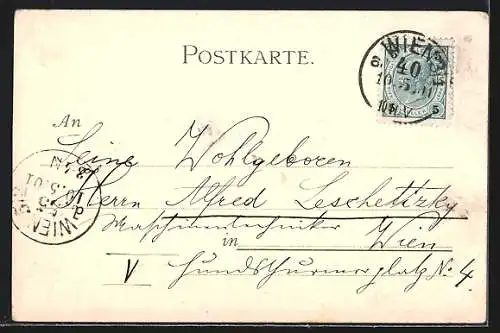 POSTKARTE.
WIEN
40
10.5.01
5
An
Seine Wohlgeboren
Herrn Alfred Leschetitzky
Maschinentechniker
in Wien
V Hundsthurmerplatz No. 4.
WIEN
5.01